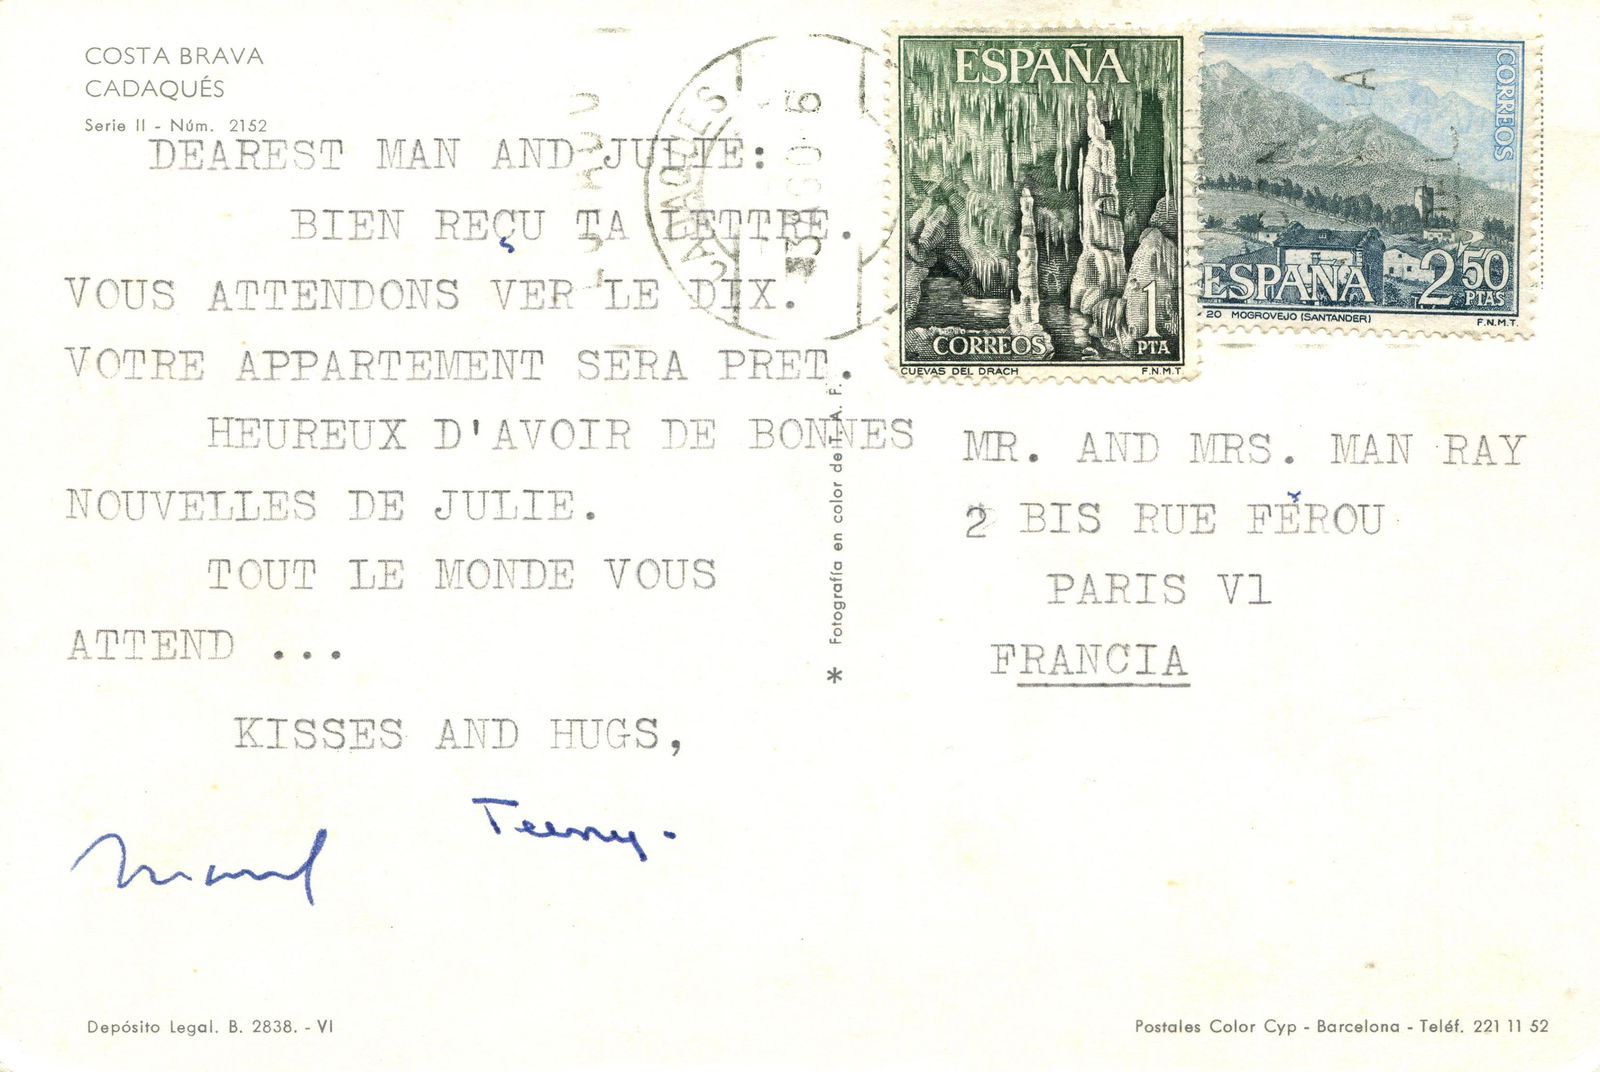 COSTA BRAVA
CADAQUÉS
Serie II - Núm. 2152
DEAREST MAN AND JULIE:
BIEN REÇU TA LETTRE.
VOUS ATTENDONS VER LE DIX.
VOTRE APPARTEMENT SERA PRET.
HEUREUX D'AVOIR DE BONNES
NOUVELLES DE JULIE.
TOUT LE MONDE VOUS
ATTEND ...
KISSES AND HUGS,
Teeny.
Marcel
Depósito Legal. B. 2838. - VI
* Fotografía en color de T. A. F.
CADAQUES
ESPAÑA
CORREOS
1
PTA
CUEVAS DEL DRACH
F.N.M.T
CORREOS
ESPAÑA
2'50
PTAS
20 MOGROVEJO (SANTANDER)
F.N.M.T.
MR. AND MRS. MAN RAY
2 BIS RUE FĚROU
PARIS V1
FRANCIA
Postales Color Cyp - Barcelona - Teléf. 221 11 52